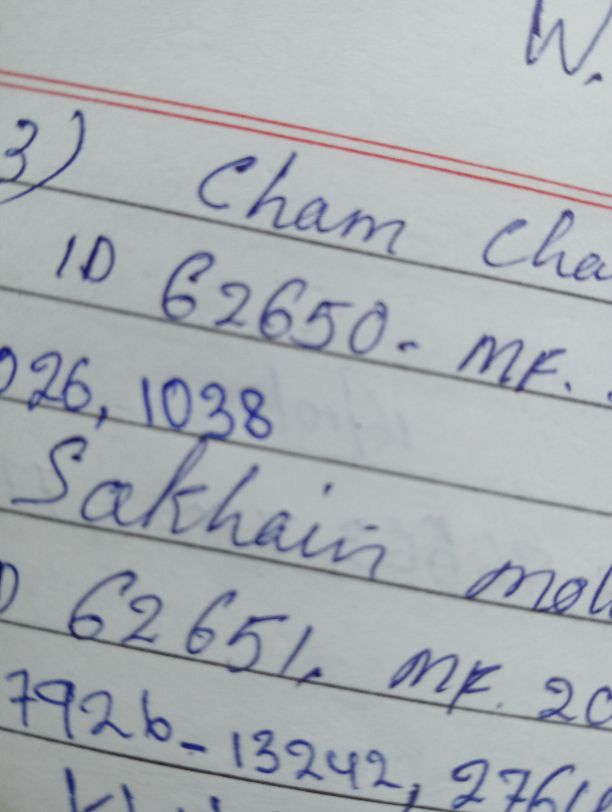 W.
3) Cham Cha
ID 62650- MF.
026, 1038
Sakhain
D 62651. MF. 20
7926-13242, 2761